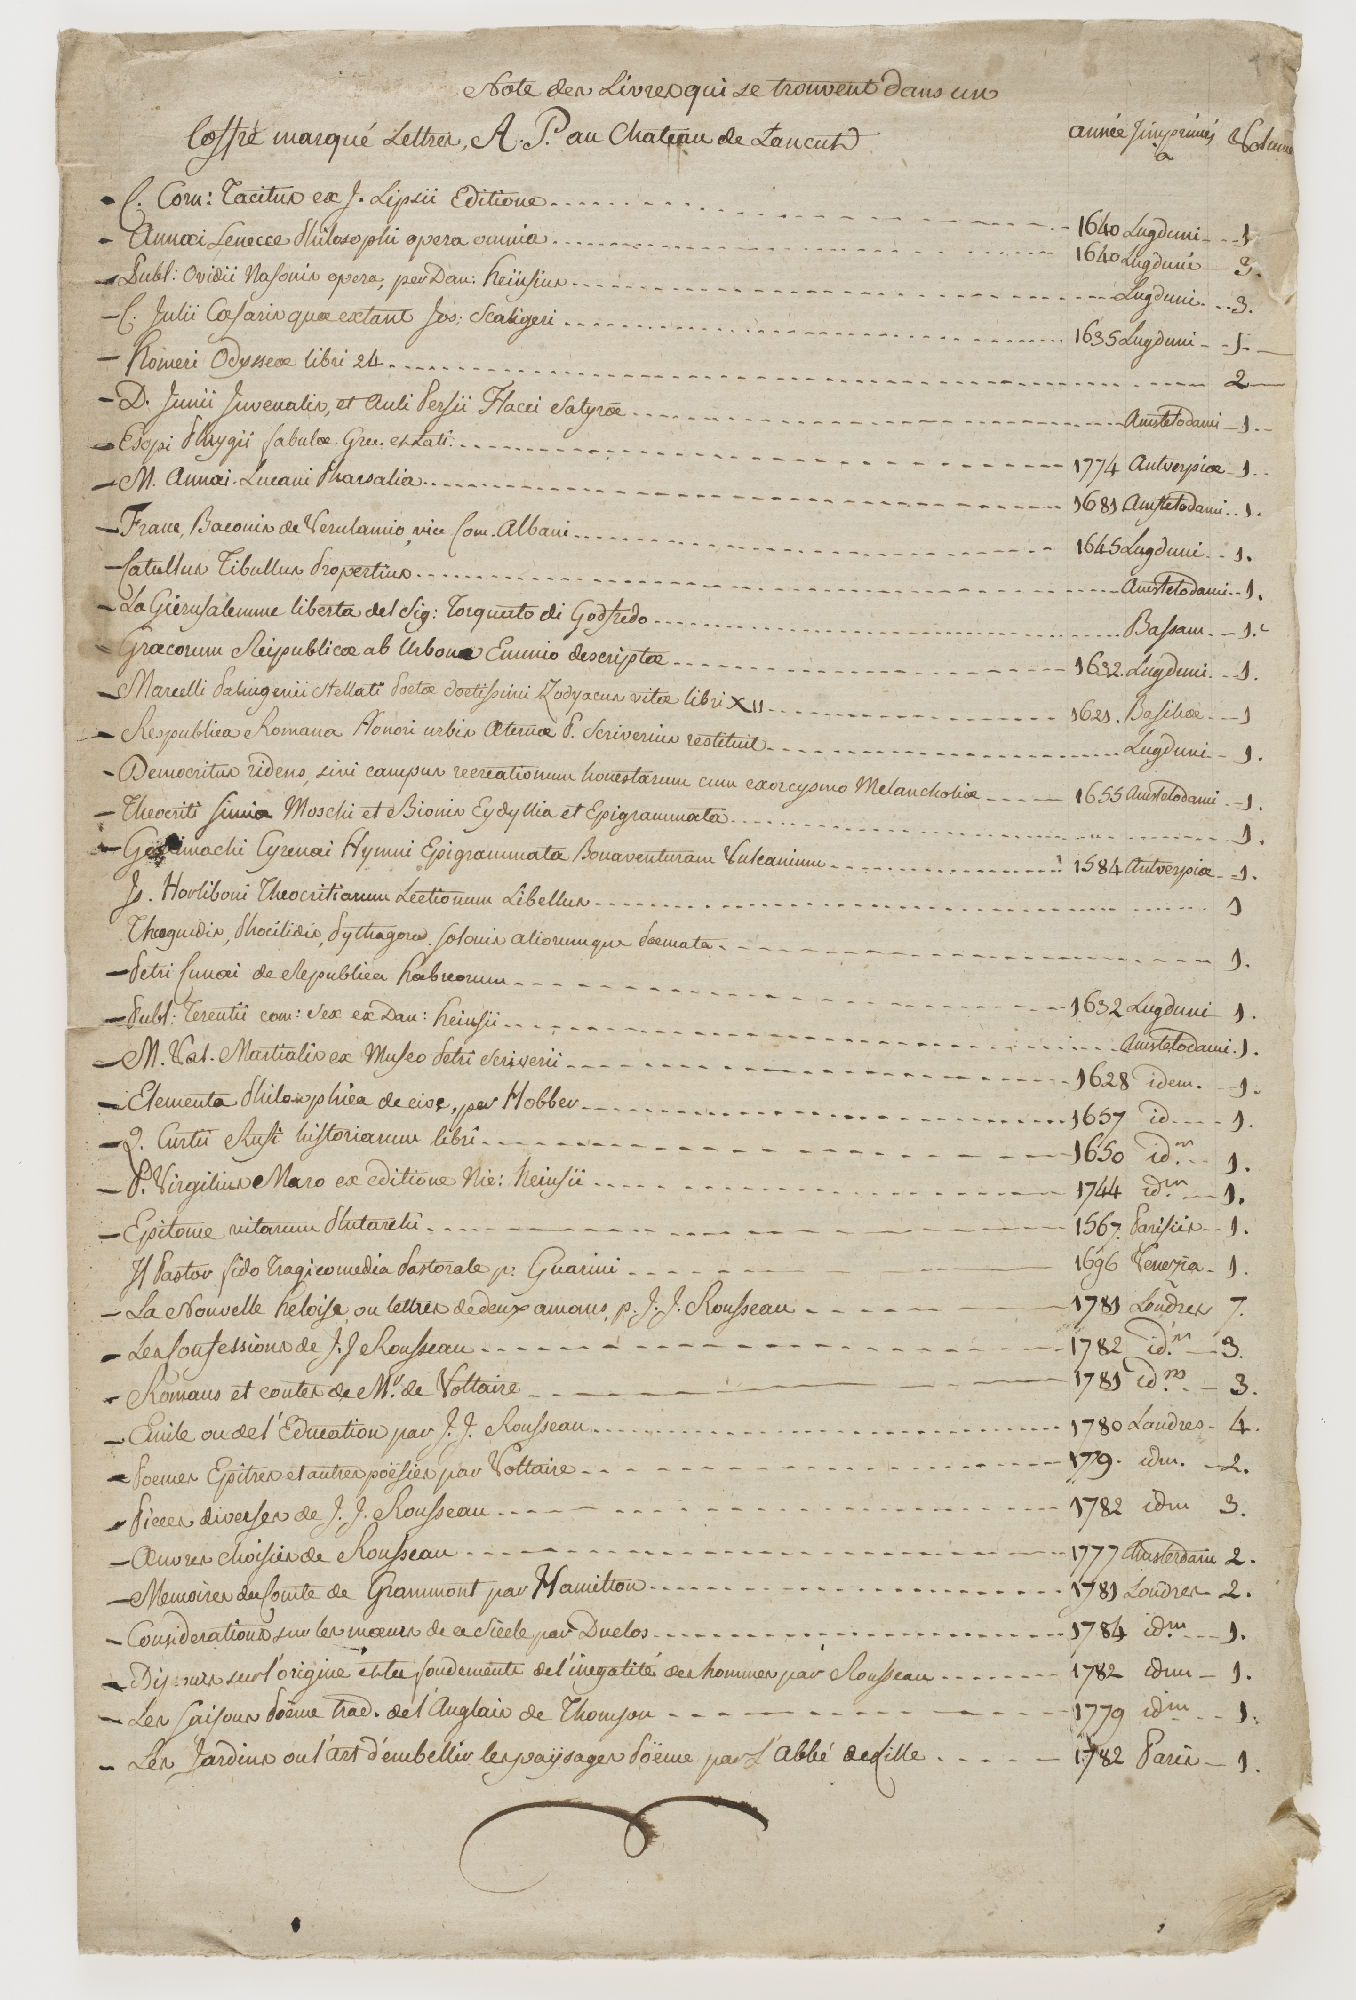 Note des Livres qui se trouvent dans un
Coffre marqué Lettres, A. P. au Chateau de Lancut
année Jmprimés à Volume
- C. Corn: Tacitus ex J. Lipsii Editione 1640 Lugduni 1
- Annæi Senecce Philosophi opera omnia 1640 Lugduni 3.
- Publ: Ovidii Nasonis opera, per Dan: Heinsius Lugduni 3.
- C. Julii Cæsaris quæ extant Jos: Scaligeri 1635 Lugduni 1
- Homeri Odysseæ libri 24 2
- D. Junii Juvenalis, et Auli Persii Flacci Satyræ Amstelodami 1
- Esopi Phrygii fabulæ Græ. et Lati. 1774 Antverpiæ 1
- M. Annæi Lucani Pharsalia 1681 Amstelodami 1.
- Franc, Baconis de Verulamio, vice Com. Albani 1645 Lugduni 1.
- Catullus Tibullus Propertius Amstelodami 1.
- La Gierusalemme liberta del Sig: Torquato di Godfredo Bassam 1.
Græcorum Reipublicæ ab Urbone Emmio descriptæ 1632 Lugduni 1.
- Marcelli Palingenii Stellati Poetæ doctissimi Zodyacus vitæ libri XII 1621. Basileæ 1
- Respublica Romana Honori urbis Æternæ P. Scriverius restituit Lugduni 1.
- Democritus ridens, sivi campus recreationum honestarum cum exorcysmo Melancholiæ 1655 Amstelodami 1.
- Theocriti Simiæ Moschi et Bionis Eydyllia et Epigrammata 1.
- Cyrenai Hymni Epigrammata Bonaventuram Vulcanium 1584 Antverpiæ 1.
Js. Horliboni Theocritianum Lectionum Libellus 1
Theognidis, Phocilidis, Pythagoræ. Solonis aliorumque Poemata 1.
- Petri Cunæi de Republica Habreorum 1632 Lugduni 1.
- Publ: Terentii com: Sex ex Dan: Heinsii Amstelodami. 1.
- M. Val. Martialis ex Museo Petri Scriverii 1628 idem. 1.
- Elementa Philosophica de cive, par Hobbes 1657 id 1.
- Q. Curtii Rufi historiarum libri 1650 idm 1.
- P. Virgilius Maro ex editione Nic: Heinsii 1744 idm 1.
- Epitome vitarum Plutarchi 1567. Parisiis 1.
Il Pastor fido Tragicomedia Pastorale p: Guarini 1696 Venezia 1.
- La Nouvelle heloise ou lettres de deux amans, p. J. J. Rousseau 1781 Londres 7.
- Les Confessions de J. J Rousseau 1782 idm 3.
- Romans et contes de Mr. de Voltaire 1781 idm 3.
- Emile ou de l'Education par J. J. Rousseau 1780 Landres 4.
- Poemes Epitres et autres poësies par Voltaire 1779. idm. 2.
- Pieces diverses de J. J. Rousseau 1782 idm 3.
- Œuvres choisies de Rousseau 1777 Amsterdam 2.
- Memoires du Comte de Grammont par Hamilton 1781 Londres 2.
- Considerations sur les mœurs de ce Siecle par Duclos 1784 idm 1.
- Discours sur l'origine et les fondements de l'inegalité des hommes par Rousseau 1782 idm 1.
- Les Saisons Poëme trad. de l'Anglais de Thomson 1779 idm 1.
- Les Jardins ou l'art d'embellir les paÿsages Poëme par L'Abbé de Lille 1782 Paris 1.